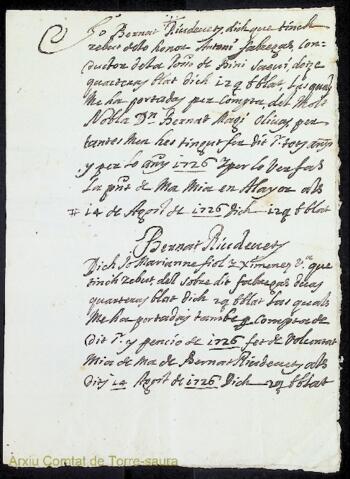 Jo Bernat Riudevets, dich que tinch
rebut de lo honor Antoni Fabregas, con-
ductor de la Poss.n de Bini Saqui dotze
quarteras blat dich 12 q blat las quals
Me ha portadas per Compte del Molt
Nobla D.n Bernat Magi Olives, per
tantes Men hes tingut fer dit
y per lo añy 1726 y per lo Ver fas
la pnt de Ma Mia en Alayor als
14 de Agost de 1726 Dich 12 q blat
Bernat Riudevets
Dich Jo Marianne fiol y Ximenes que
tinch rebut dell sobre dit fabregas
quarteras blat dich 2 q blat las quals
Me ha portadas tambe p Compte de
dit y pencio de 1726 fet de Voluntat
Mia de ma de Bernat Riudevets als
dits 14 Agost de 1726 Dich 2 q blat
Arxiu Comtat de Torre-saura